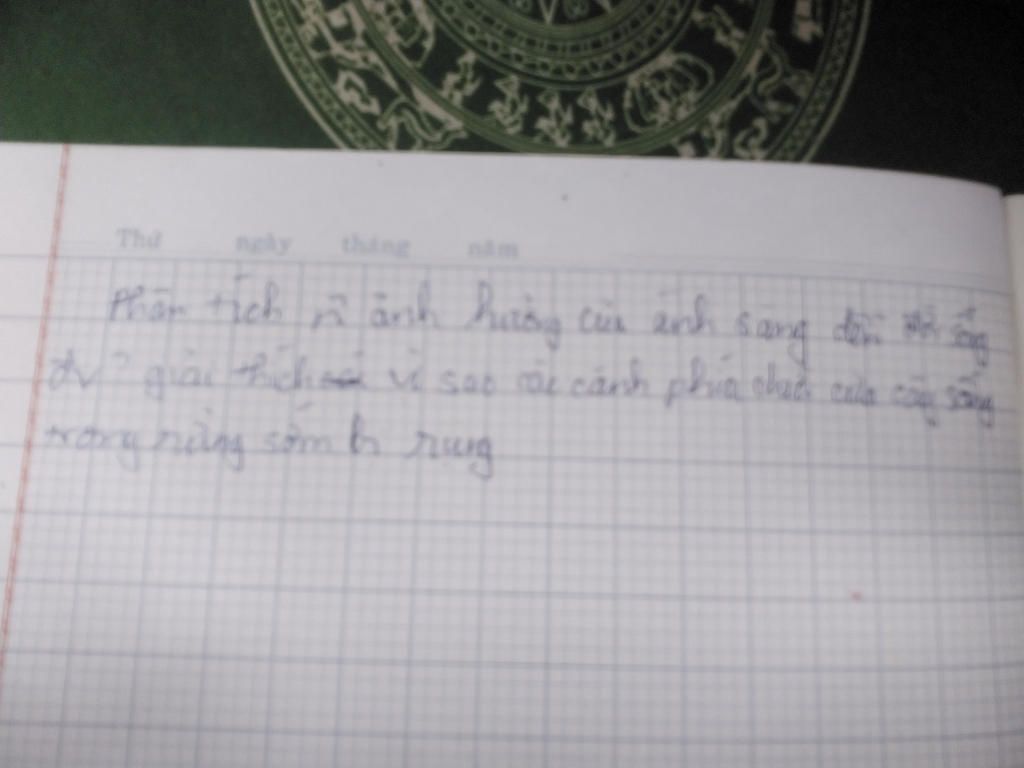 Thứ ngày tháng năm
Phân tích ảnh hưởng của ánh sáng đến đời sống
đv? giải thích vì sao các cành phía dưới của cây sống
trong rừng sớm bị rụng